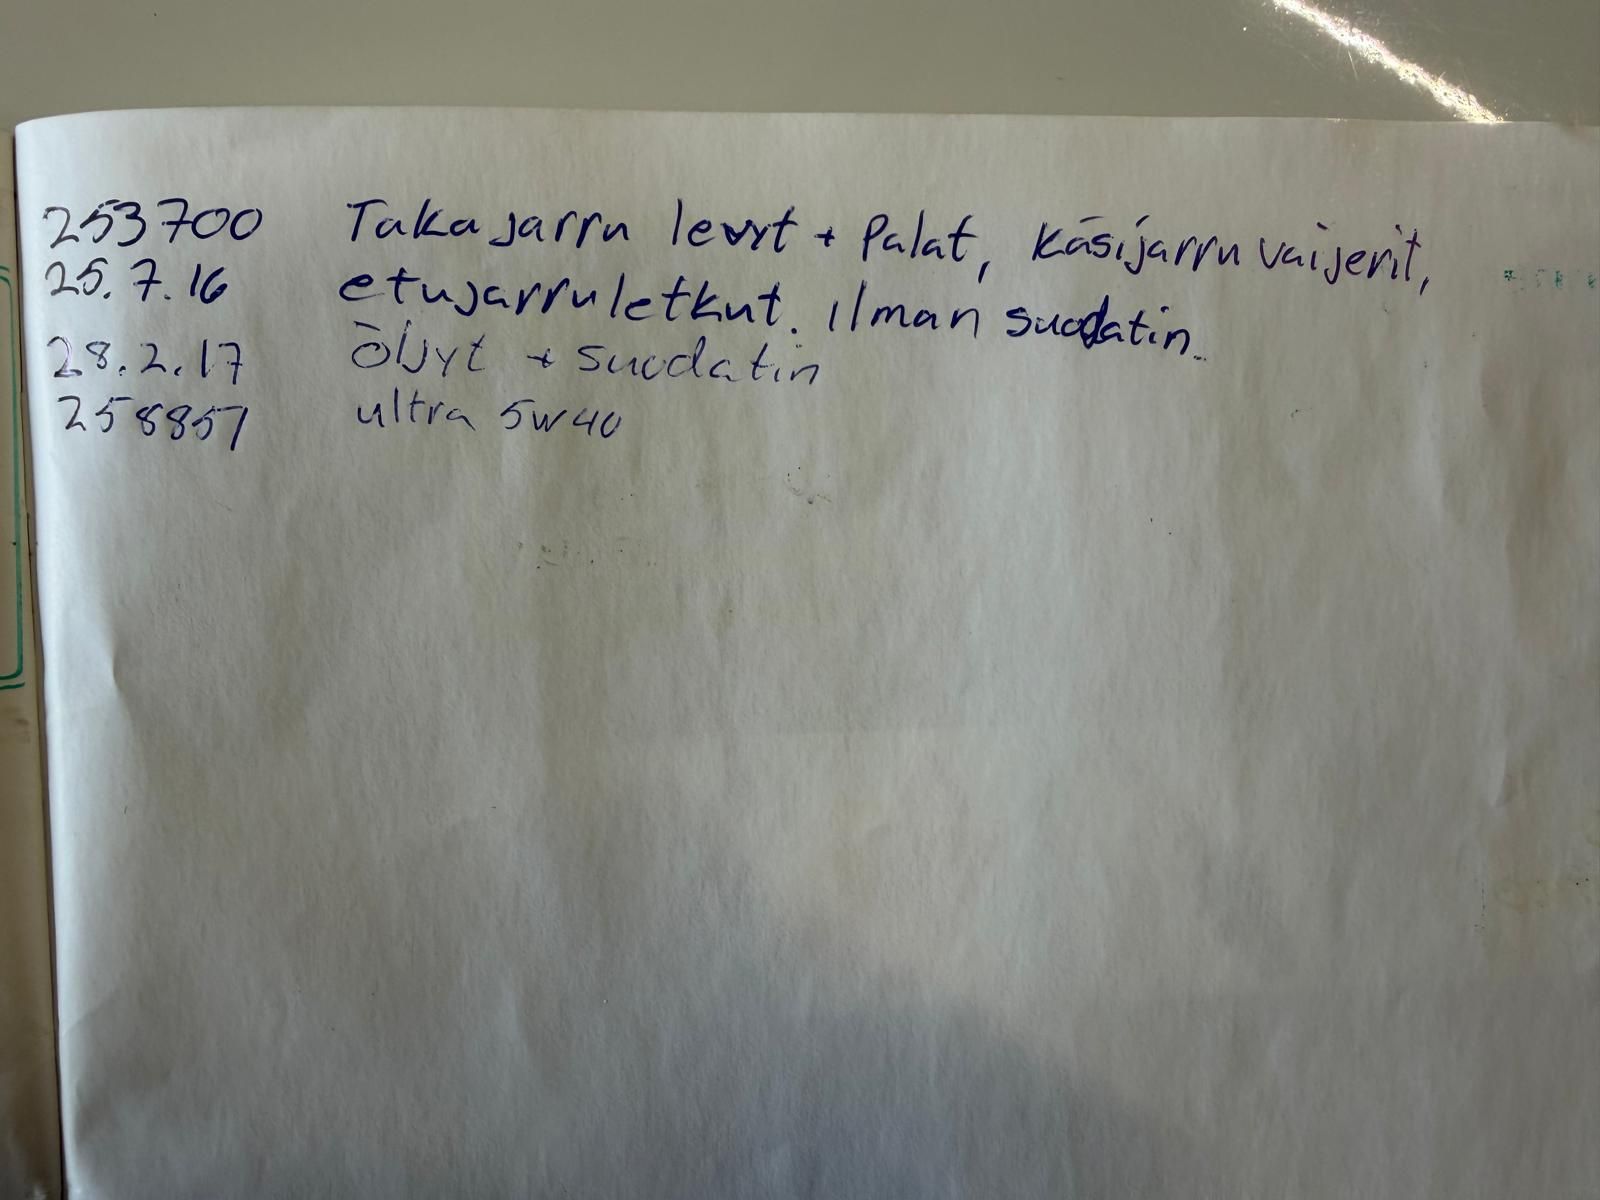 253700 Takajarru levyt + Palat, Käsijarru vaijerit,
25.7.16 etujarruletkut. ilman suodatin.
28.2.17 Öljyt + suodatin
258857 ultra 5w40